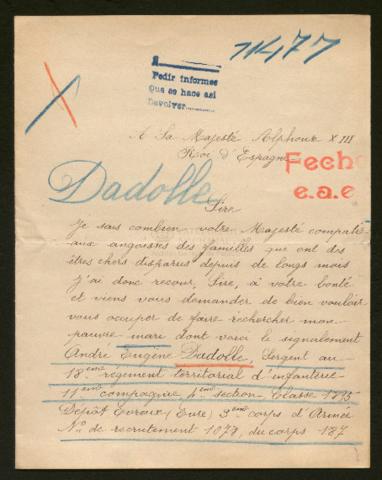 71477
Pedir informes
Que se hace asi
Devolver
A Sa Majesté Alphonse XIII
Roi d'Espagne
Fech
e.a.e.
Dadolle
Sire
Je sais combien votre Majesté compatit
aux angoisses des familles que ont des
êtres chers disparus depuis de longs mois
j'ai donc recour, Sire, à votre bonté
et viens vous demander de bien vouloir
vous occuper de faire rechercher mon
pauvre mari dont voici le signalement
André Eugène Dadolle, Sergent au
18ème régiment territorial d'infanterie
11ème compagnie 4ème section. Classe 1895
Dépôt Evreux (Eure) 3ème corps d'Armée
No de recrutement 1079, du corps 187